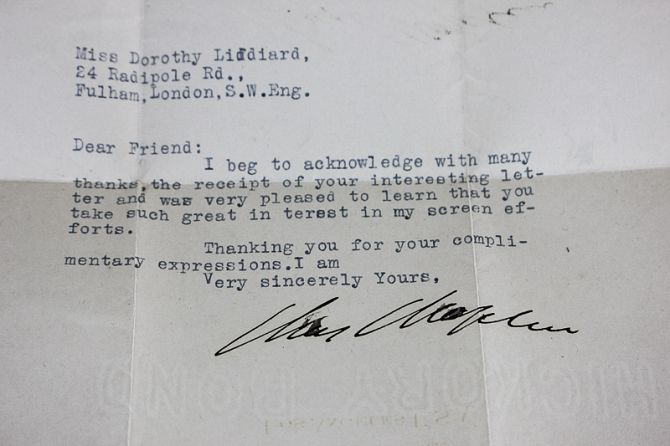 Miss Dorothy Liddiard,
24 Radipole Rd.,
Fulham,London,S.W.Eng.
Dear Friend:
I beg to acknowledge with many
thanks,the receipt of your interesting let-
ter and was very pleased to learn that you
take such great in terest in my screen ef-
forts.
Thanking you for your compli-
mentary expressions.I am
Very sincerely Yours,
Chas Chaplin
HICKORY BOND
Los Angeles U.S.A.